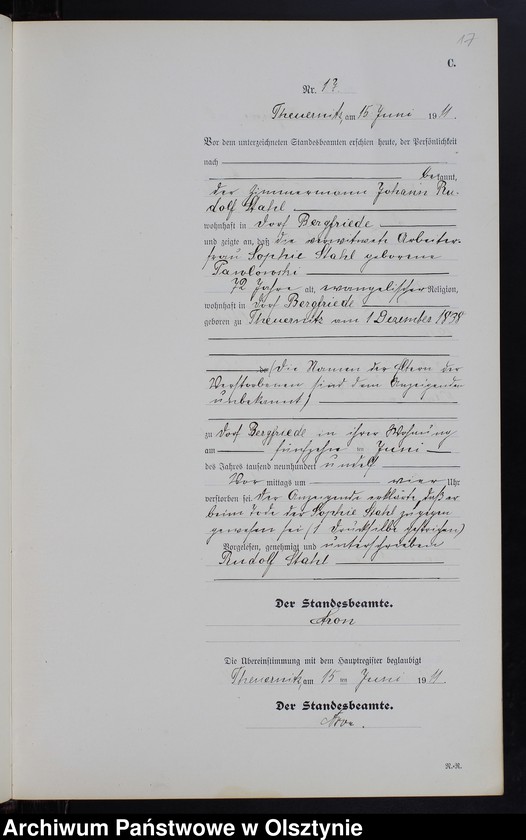 17
C.
Nr. 17.
Theuernitz, am 15 Juni 1911.
Vor dem unterzeichneten Standesbeamten erschien heute, der Persönlichkeit
nach
bekannt,
der Zimmermann Johann Ru-
dolf Stahl
wohnhaft in Dorf Bergfriede
und zeigte an, daß die verwitwete Arbeiter-
frau Sophie Stahl geborene
Pawlowski
72 Jahre alt, evangelischer Religion,
wohnhaft in Dorf Bergfriede
geboren zu Theuernitz am 1 Dezember 1838
(die Namen der Eltern der
Verstorbenen sind dem Anzeigenden
unbekannt)
zu Dorf Bergfriede in ihrer Wohnung
am fünfzehn ten Juni
des Jahres tausend neunhundert und elf
Vor mittags um vier Uhr
verstorben sei. Der Anzeigende erklärte, daß er
beim Tode der Sophie Stahl zugegen
gewesen sei (1 Drucksilbe gestrichen)
Vorgelesen, genehmigt und unterschrieben
Rudolf Stahl
Der Standesbeamte.
Die Übereinstimmung mit dem Hauptregister beglaubigt
Theuernitz, am 15 ten Juni 1911.
Der Standesbeamte.
R.-R.
Archiwum Państwowe w Olsztynie